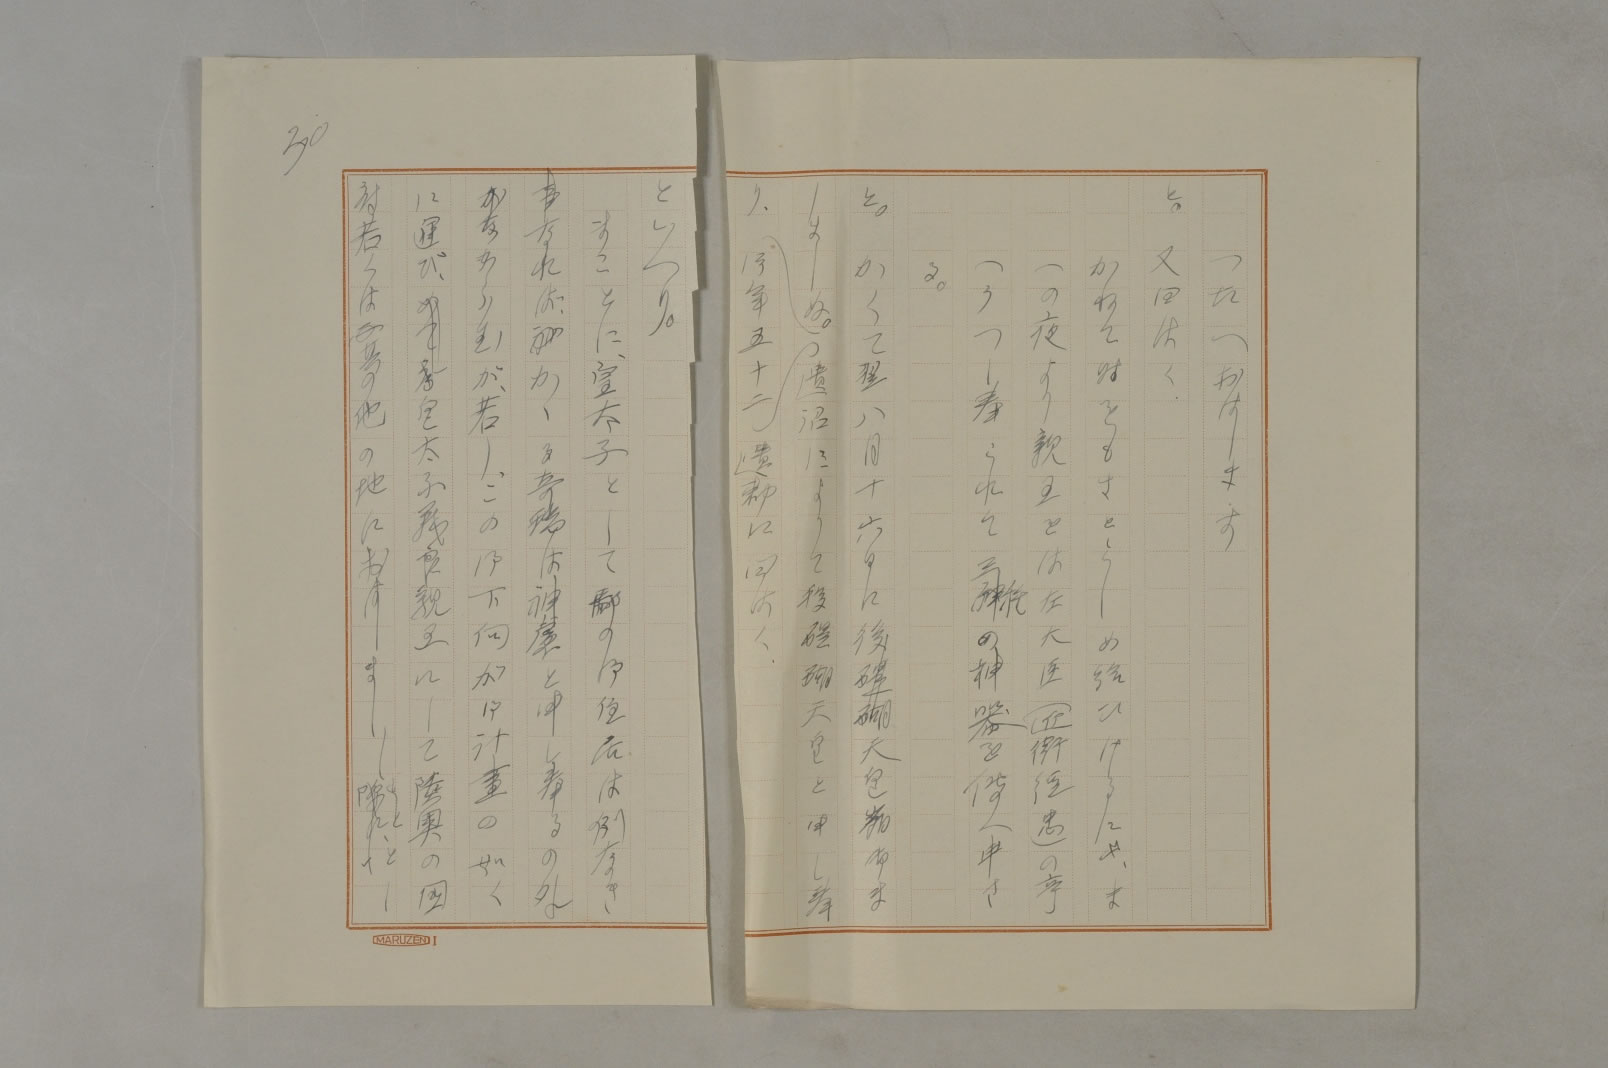 つたへおはします
と。又曰はく、
かねて時をもさとらしめ給ひけるにや、ま
への夜より親王をは左大臣(近衛経忠)の亭
へうつし奉られて三種の神器を傳へ申さ
る。
と。かくて翌八月十六日に後醍醐天皇崩御ま
しましぬ。遺詔によりて後醍醐天皇と申し奉
り、御年五十二、遺勅に曰はく、
といへり。
まことに、皇太子として の御住居は例なき
事なれば、 かゝる奇瑞は神慮と申し奉るの外
かなからむが、若し、この御下向が御計畫の如く
に運び、 皇太子義良親王にして陸奥の国
府若くは霊山の地におはしましし とし
30
MARUZEN I